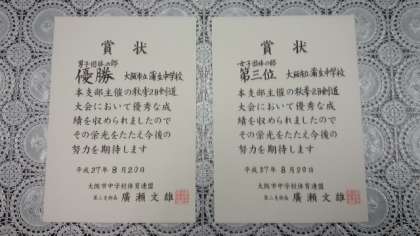 賞状
男子団体の部
優勝 大阪市立蒲生中学校
本支部主催の秋季2B剣道
大会において優秀な成
績を収められましたので
その栄光をたたえ今後の
努力を期待します
平成27年8月20日
大阪市中学校体育連盟
第二支部長 廣瀬文雄
賞状
女子団体の部
第三位 大阪市立蒲生中学校
本支部主催の秋季2B剣道
大会において優秀な成
績を収められましたので
その栄光をたたえ今後の
努力を期待します
平成27年8月20日
大阪市中学校体育連盟
第二支部長 廣瀬文雄